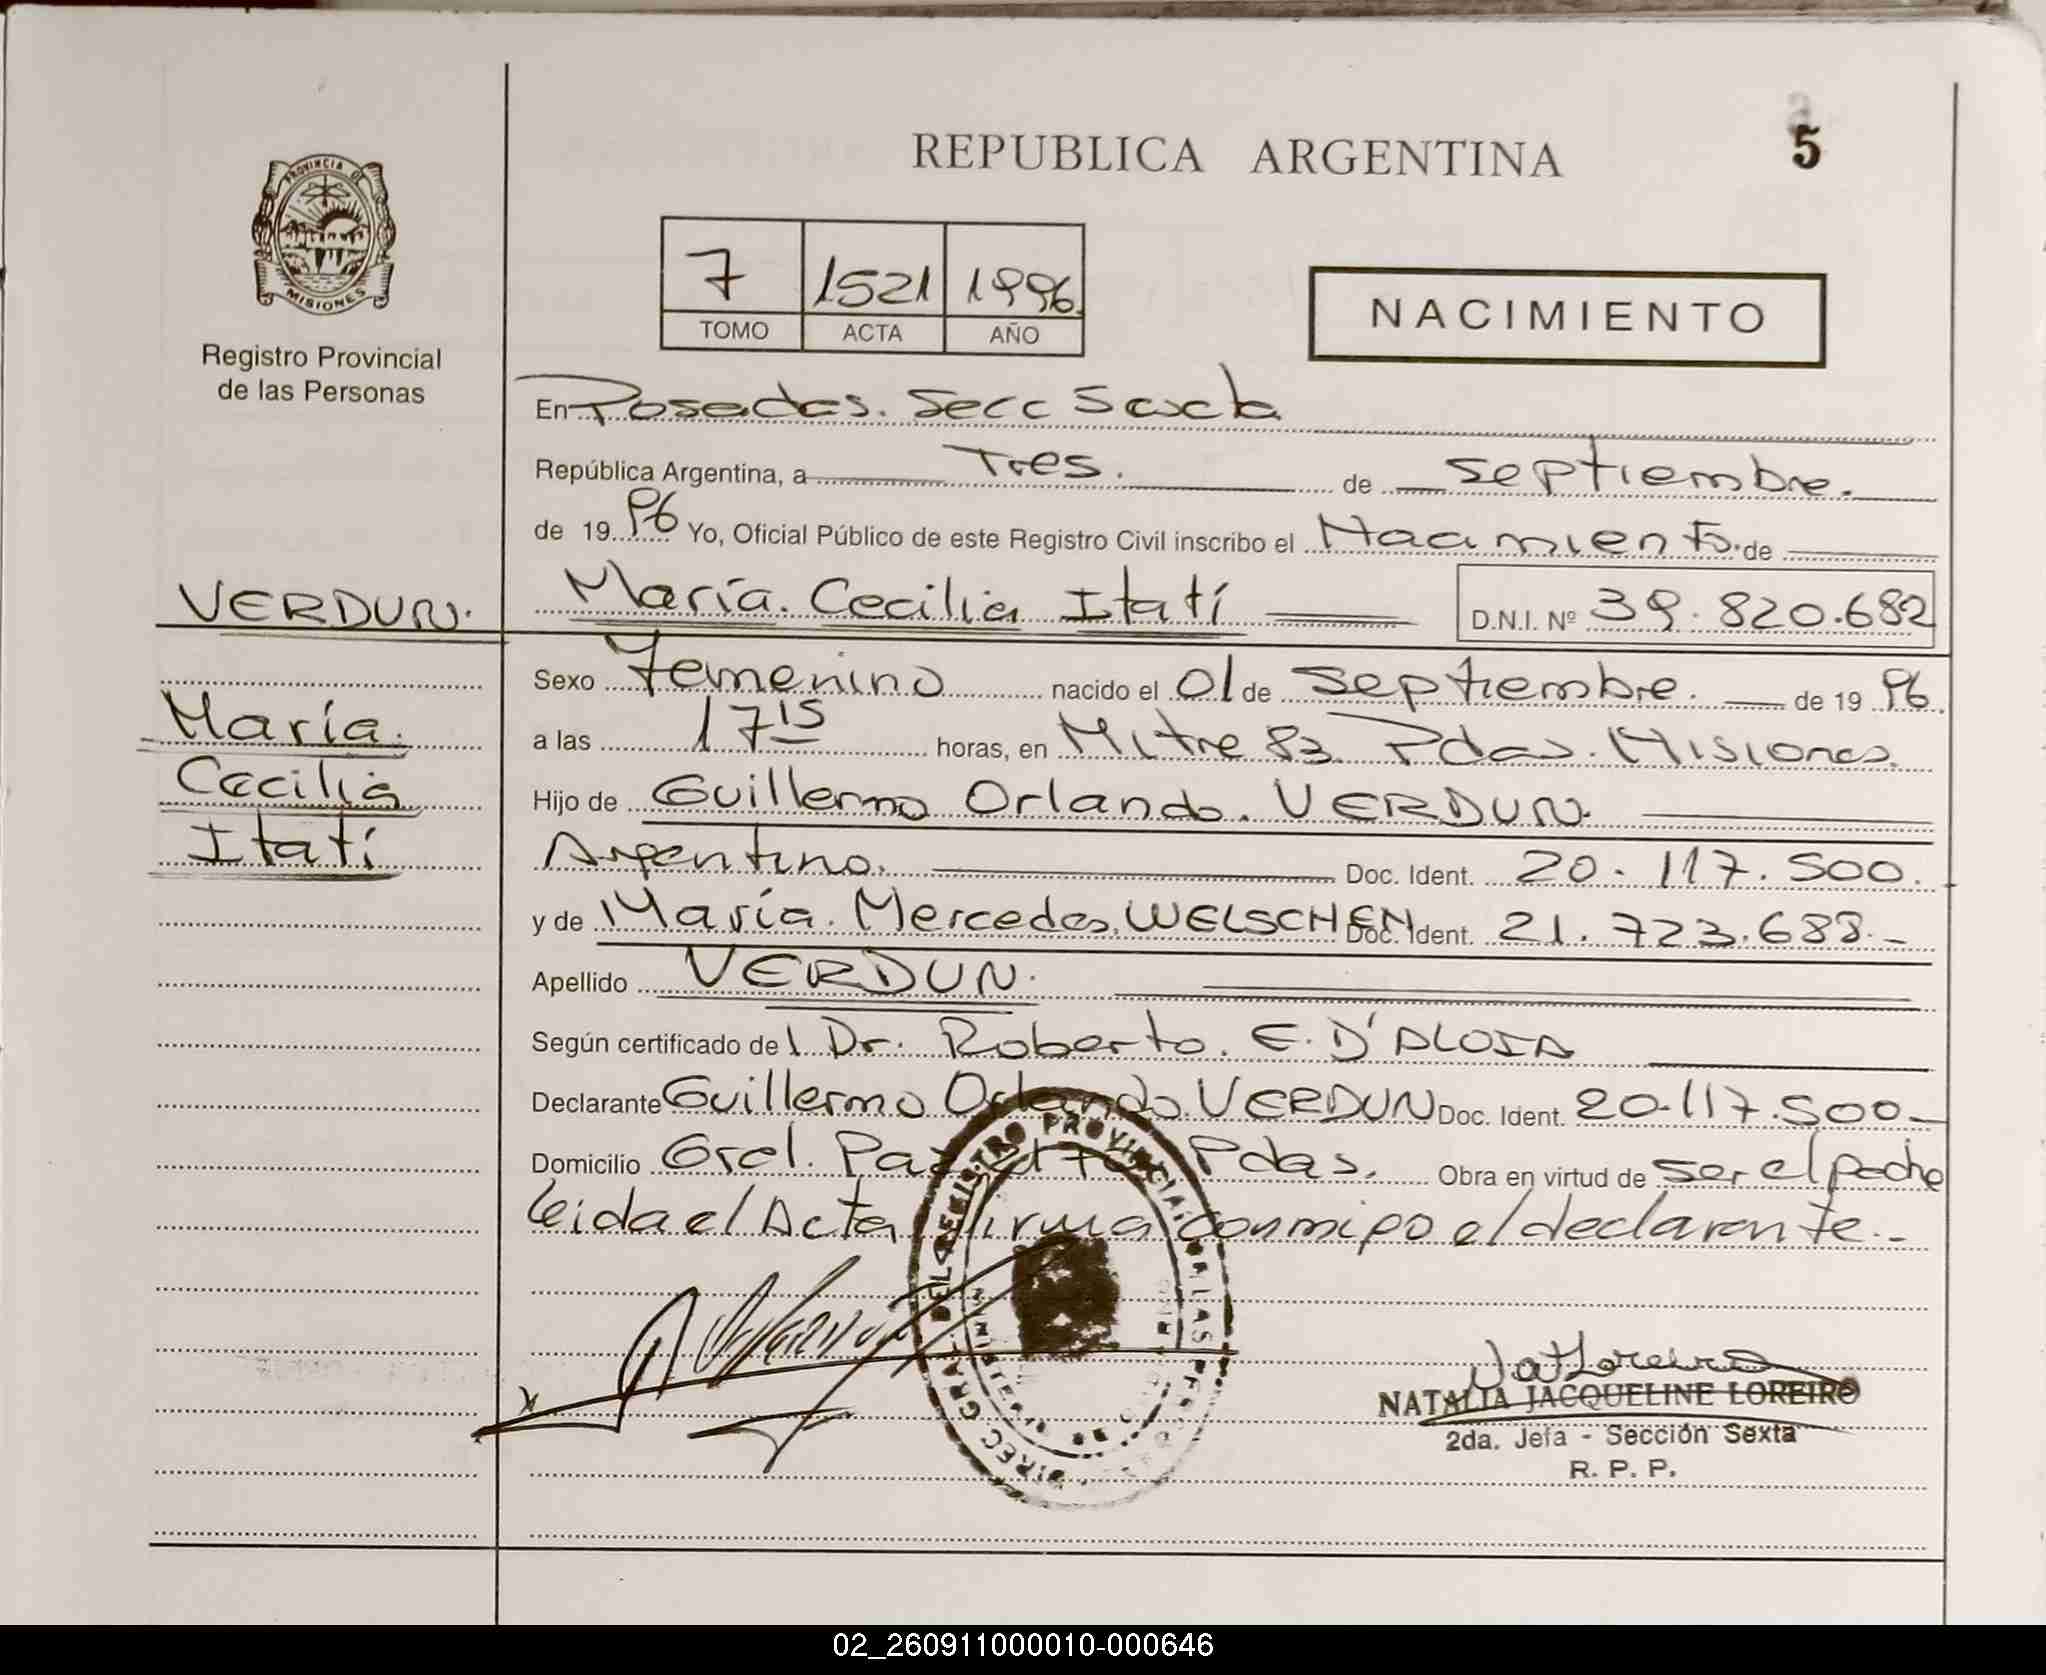 REPUBLICA ARGENTINA
5
PROVINCIA DE
MISIONES
Registro Provincial
de las Personas
7 1521 1996.
TOMO ACTA AÑO
NACIMIENTO
En Posadas. Secc Sexta
República Argentina, a Tres. de septiembre.
de 19 96 Yo, Oficial Público de este Registro Civil inscribo el Nacimiento. de
VERDUN.
María. Cecilia Itatí D.N.I. Nº 39.820.682
Sexo Femenino nacido el 01 de septiembre. de 19 96.
María.
a las 17 15 horas, en Mitre 83 Pdas. Misiones.
Cecilia
Hijo de Guillermo Orlando. VERDUN.
Itatí
Argentino. Doc. Ident. 20.117.500.
y de María. Mercedes. WELSCHEN Doc. Ident. 21.723.688.-
Apellido VERDUN.
Según certificado de l Dr. Roberto. E. D'ALOIA
Declarante Guillermo Orlando. VERDUN Doc. Ident. 20.117.500-
Domicilio Gral. Paz Pdas. Obra en virtud de ser el padre
leida el Acta firma conmigo el declarante.-
DIREC GRAL DEL REGISTRO PROVINCIAL DE LAS PERSONAS
Nat Loreiro
NATALIA JACQUELINE LOREIRO
2da. Jefa - Sección Sexta
R. P. P.
02_260911000010-000646